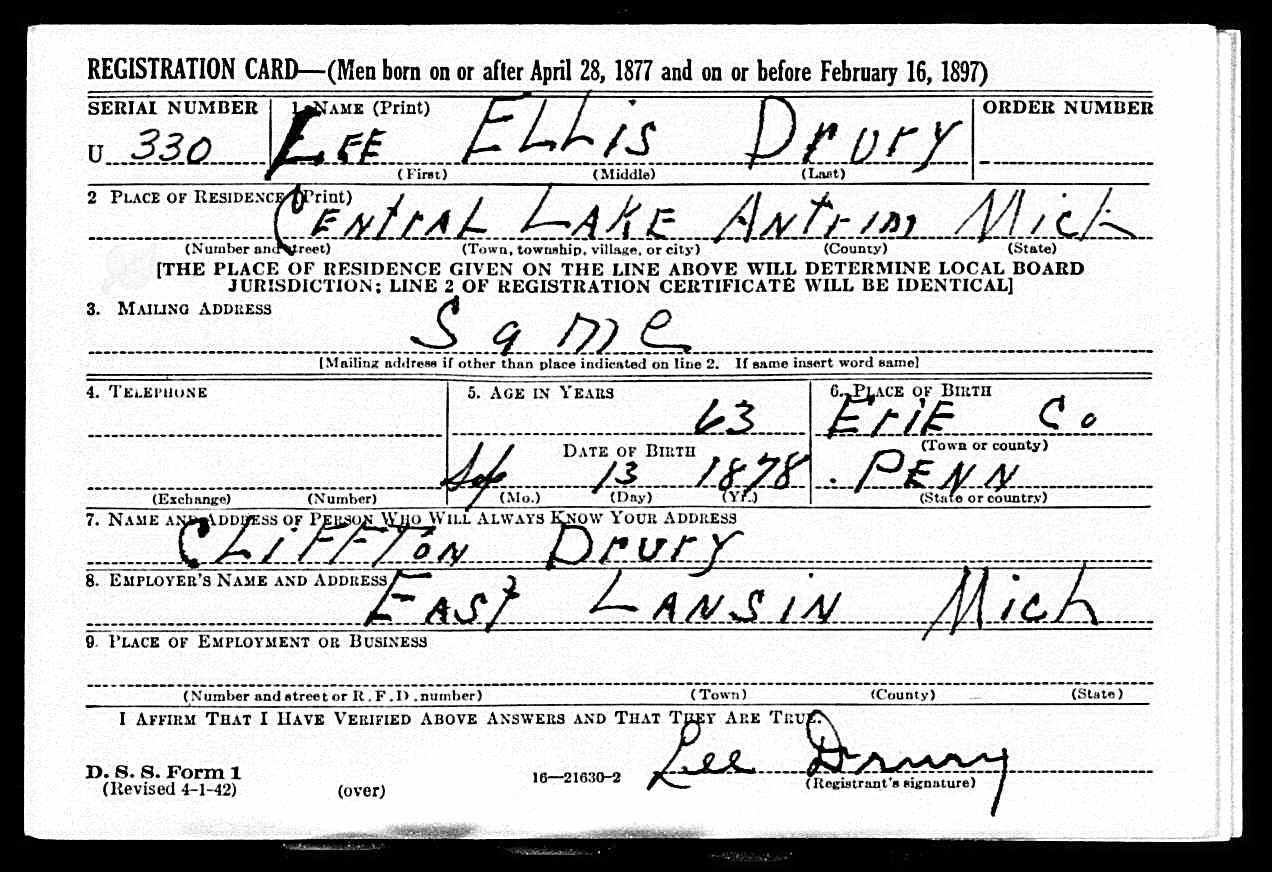 REGISTRATION CARD—(Men born on or after April 28, 1877 and on or before February 16, 1897)
SERIAL NUMBER 1. NAME (Print) ORDER NUMBER
U 330 LEE ELLiS DrurY
(First) (Middle) (Last)
2 PLACE OF RESIDENCE (Print)
CENtrAL LAKE Antrim Mich
(Number and street) (Town, township, village, or city) (County) (State)
[THE PLACE OF RESIDENCE GIVEN ON THE LINE ABOVE WILL DETERMINE LOCAL BOARD
JURISDICTION; LINE 2 OF REGISTRATION CERTIFICATE WILL BE IDENTICAL]
3. MAILING ADDRESS
Same
[Mailing address if other than place indicated on line 2. If same insert word same]
4. TELEPHONE 5. AGE IN YEARS 6. PLACE OF BIRTH
63 EriE Co
DATE OF BIRTH (Town or county)
Sep 13 1878 PENN
(Exchange) (Number) (Mo.) (Day) (Yr.) (State or country)
7. NAME AND ADDRESS OF PERSON WHO WILL ALWAYS KNOW YOUR ADDRESS
CLiFFTon DrurY
8. EMPLOYER'S NAME AND ADDRESS
EAST LANSiN Mich
9. PLACE OF EMPLOYMENT OR BUSINESS
(Number and street or R. F. D. number) (Town) (County) (State)
I AFFIRM THAT I HAVE VERIFIED ABOVE ANSWERS AND THAT THEY ARE TRUE.
Lee Drury
D. S. S. Form 1 16—21630-2 (Registrant's signature)
(Revised 4-1-42) (over)